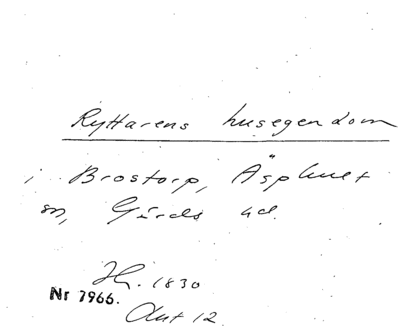 Ryttarens husegendom
i Brostorp, Äsphult
sn, Gärds hd.
H. 1830
Nr 7966.
Ant 12